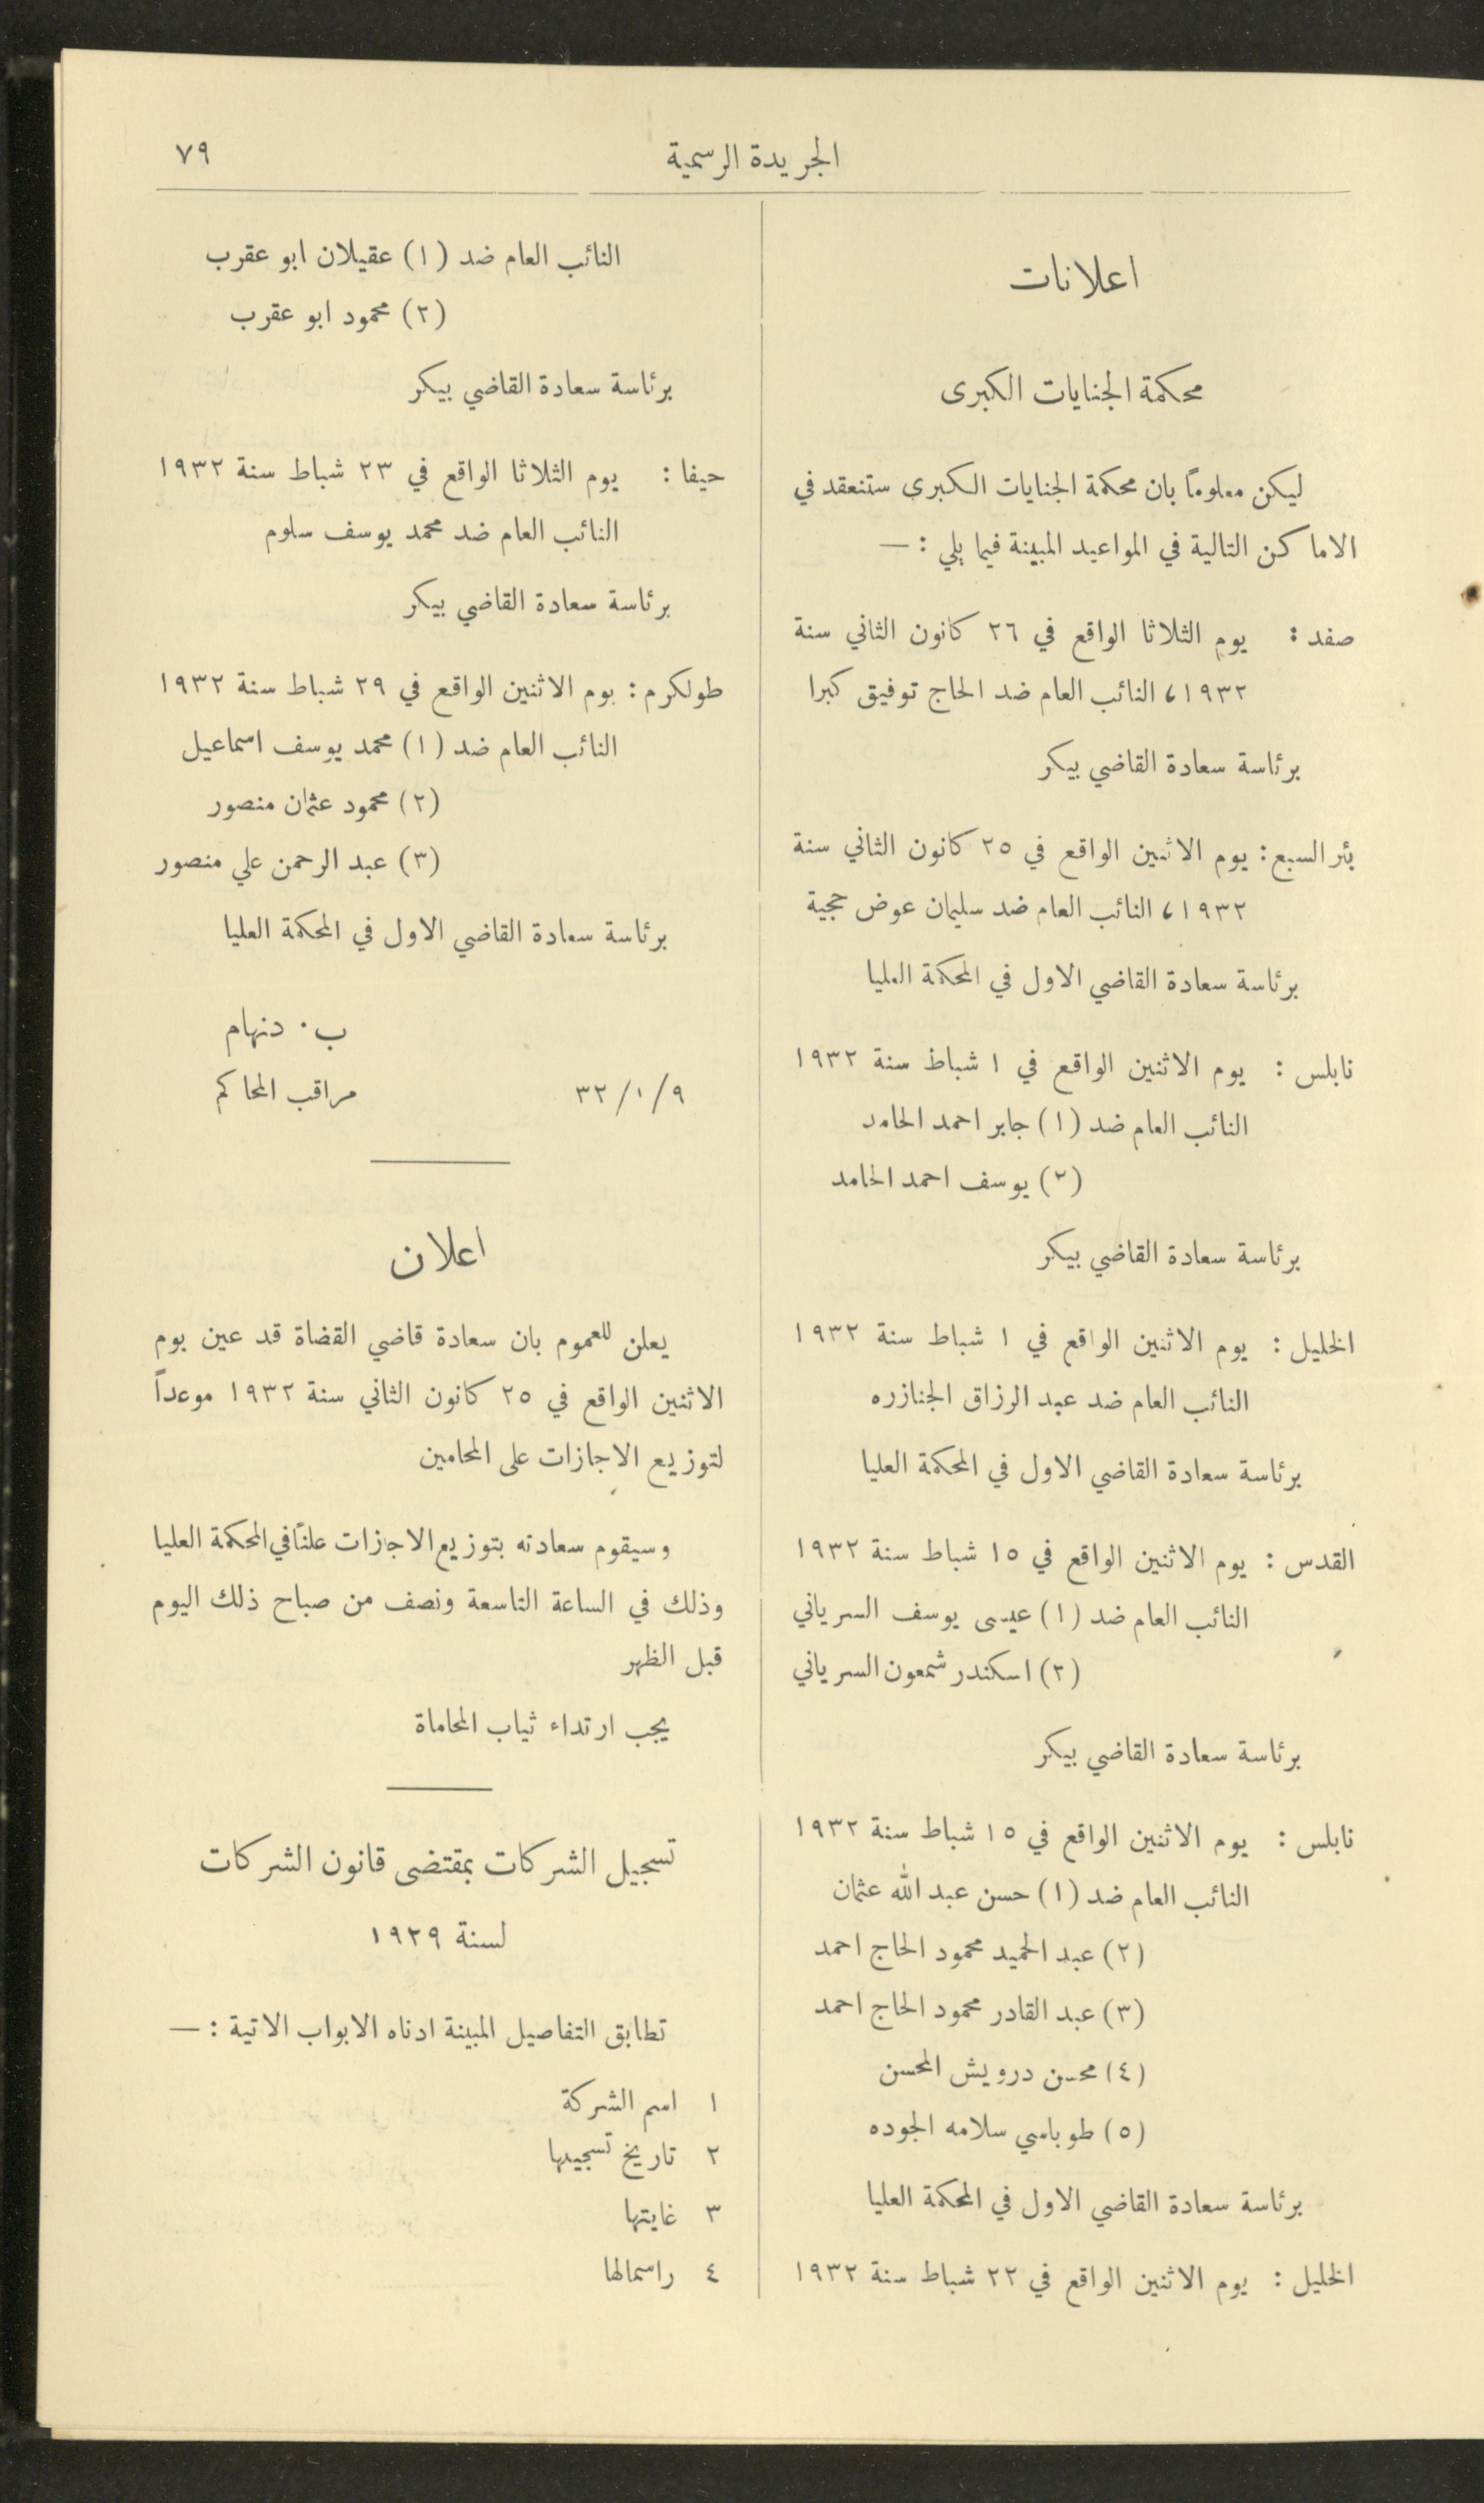 الجريدة الرسمية ٧٩
اعلانات
محكمة الجنايات الكبرى
ليكن معلوماً بان محكمة الجنايات الكبرى ستنعقد في
الاماكن التالية في المواعيد المبينة فيما يلي : —
صفد : يوم الثلاثا الواقع في ٢٦ كانون الثاني سنة
١٩٣٢، النائب العام ضد الحاج توفيق كبرا
برئاسة سعادة القاضي بيكر
بئر السبع : يوم الاثنين الواقع في ٢٥ كانون الثاني سنة
١٩٣٢، النائب العام ضد سليمان عوض حجية
برئاسة سعادة القاضي الاول في المحكمة العليا
نابلس : يوم الاثنين الواقع في ١ شباط سنة ١٩٣٢
النائب العام ضد (١) جابر احمد الحامد
(٢) يوسف احمد الحامد
برئاسة سعادة القاضي بيكر
الخليل : يوم الاثنين الواقع في ١ شباط سنة ١٩٣٢
النائب العام ضد عبد الرزاق الجنازره
برئاسة سعادة القاضي الاول في المحكمة العليا
القدس : يوم الاثنين الواقع في ١٥ شباط سنة ١٩٣٢
النائب العام ضد (١) عيسى يوسف السرياني
(٢) اسكندر شمعون السرياني
برئاسة سعادة القاضي بيكر
نابلس : يوم الاثنين الواقع في ١٥ شباط سنة ١٩٣٢
النائب العام ضد (١) حسن عبد الله عثمان
(٢) عبد الحميد محمود الحاج احمد
(٣) عبد القادر محمود الحاج احمد
(٤) محسن درويش المحسن
(٥) طوباسي سلامه الجوده
برئاسة سعادة القاضي الاول في المحكمة العليا
الخليل : يوم الاثنين الواقع في ٢٢ شباط سنة ١٩٣٢
النائب العام ضد (١) عقيلان ابو عقرب
(٢) محمود ابو عقرب
برئاسة سعادة القاضي بيكر
حيفا : يوم الثلاثا الواقع في ٢٣ شباط سنة ١٩٣٢
النائب العام ضد محمد يوسف سلوم
برئاسة سعادة القاضي بيكر
طولكرم : يوم الاثنين الواقع في ٢٩ شباط سنة ١٩٣٢
النائب العام ضد (١) محمد يوسف اسماعيل
(٢) محمود عثمان منصور
(٣) عبد الرحمن علي منصور
برئاسة سعادة القاضي الاول في المحكمة العليا
ب. دنهام
٣٢/١/٩ مراقب المحاكم
اعلان
يعلن للعموم بان سعادة قاضي القضاة قد عين يوم
الاثنين الواقع في ٢٥ كانون الثاني سنة ١٩٣٢ موعداً
لتوزيع الاجازات على المحامين
وسيقوم سعادته بتوزيع الاجازات علناً في المحكمة العليا
وذلك في الساعة التاسعة ونصف من صباح ذلك اليوم
قبل الظهر
يجب ارتداء ثياب المحاماة
تسجيل الشركات بمقتضى قانون الشركات
لسنة ١٩٢٩
تطابق التفاصيل المبينة ادناه الابواب الاتية : —
١ اسم الشركة
٢ تاريخ تسجيلها
٣ غايتها
٤ راسمالها